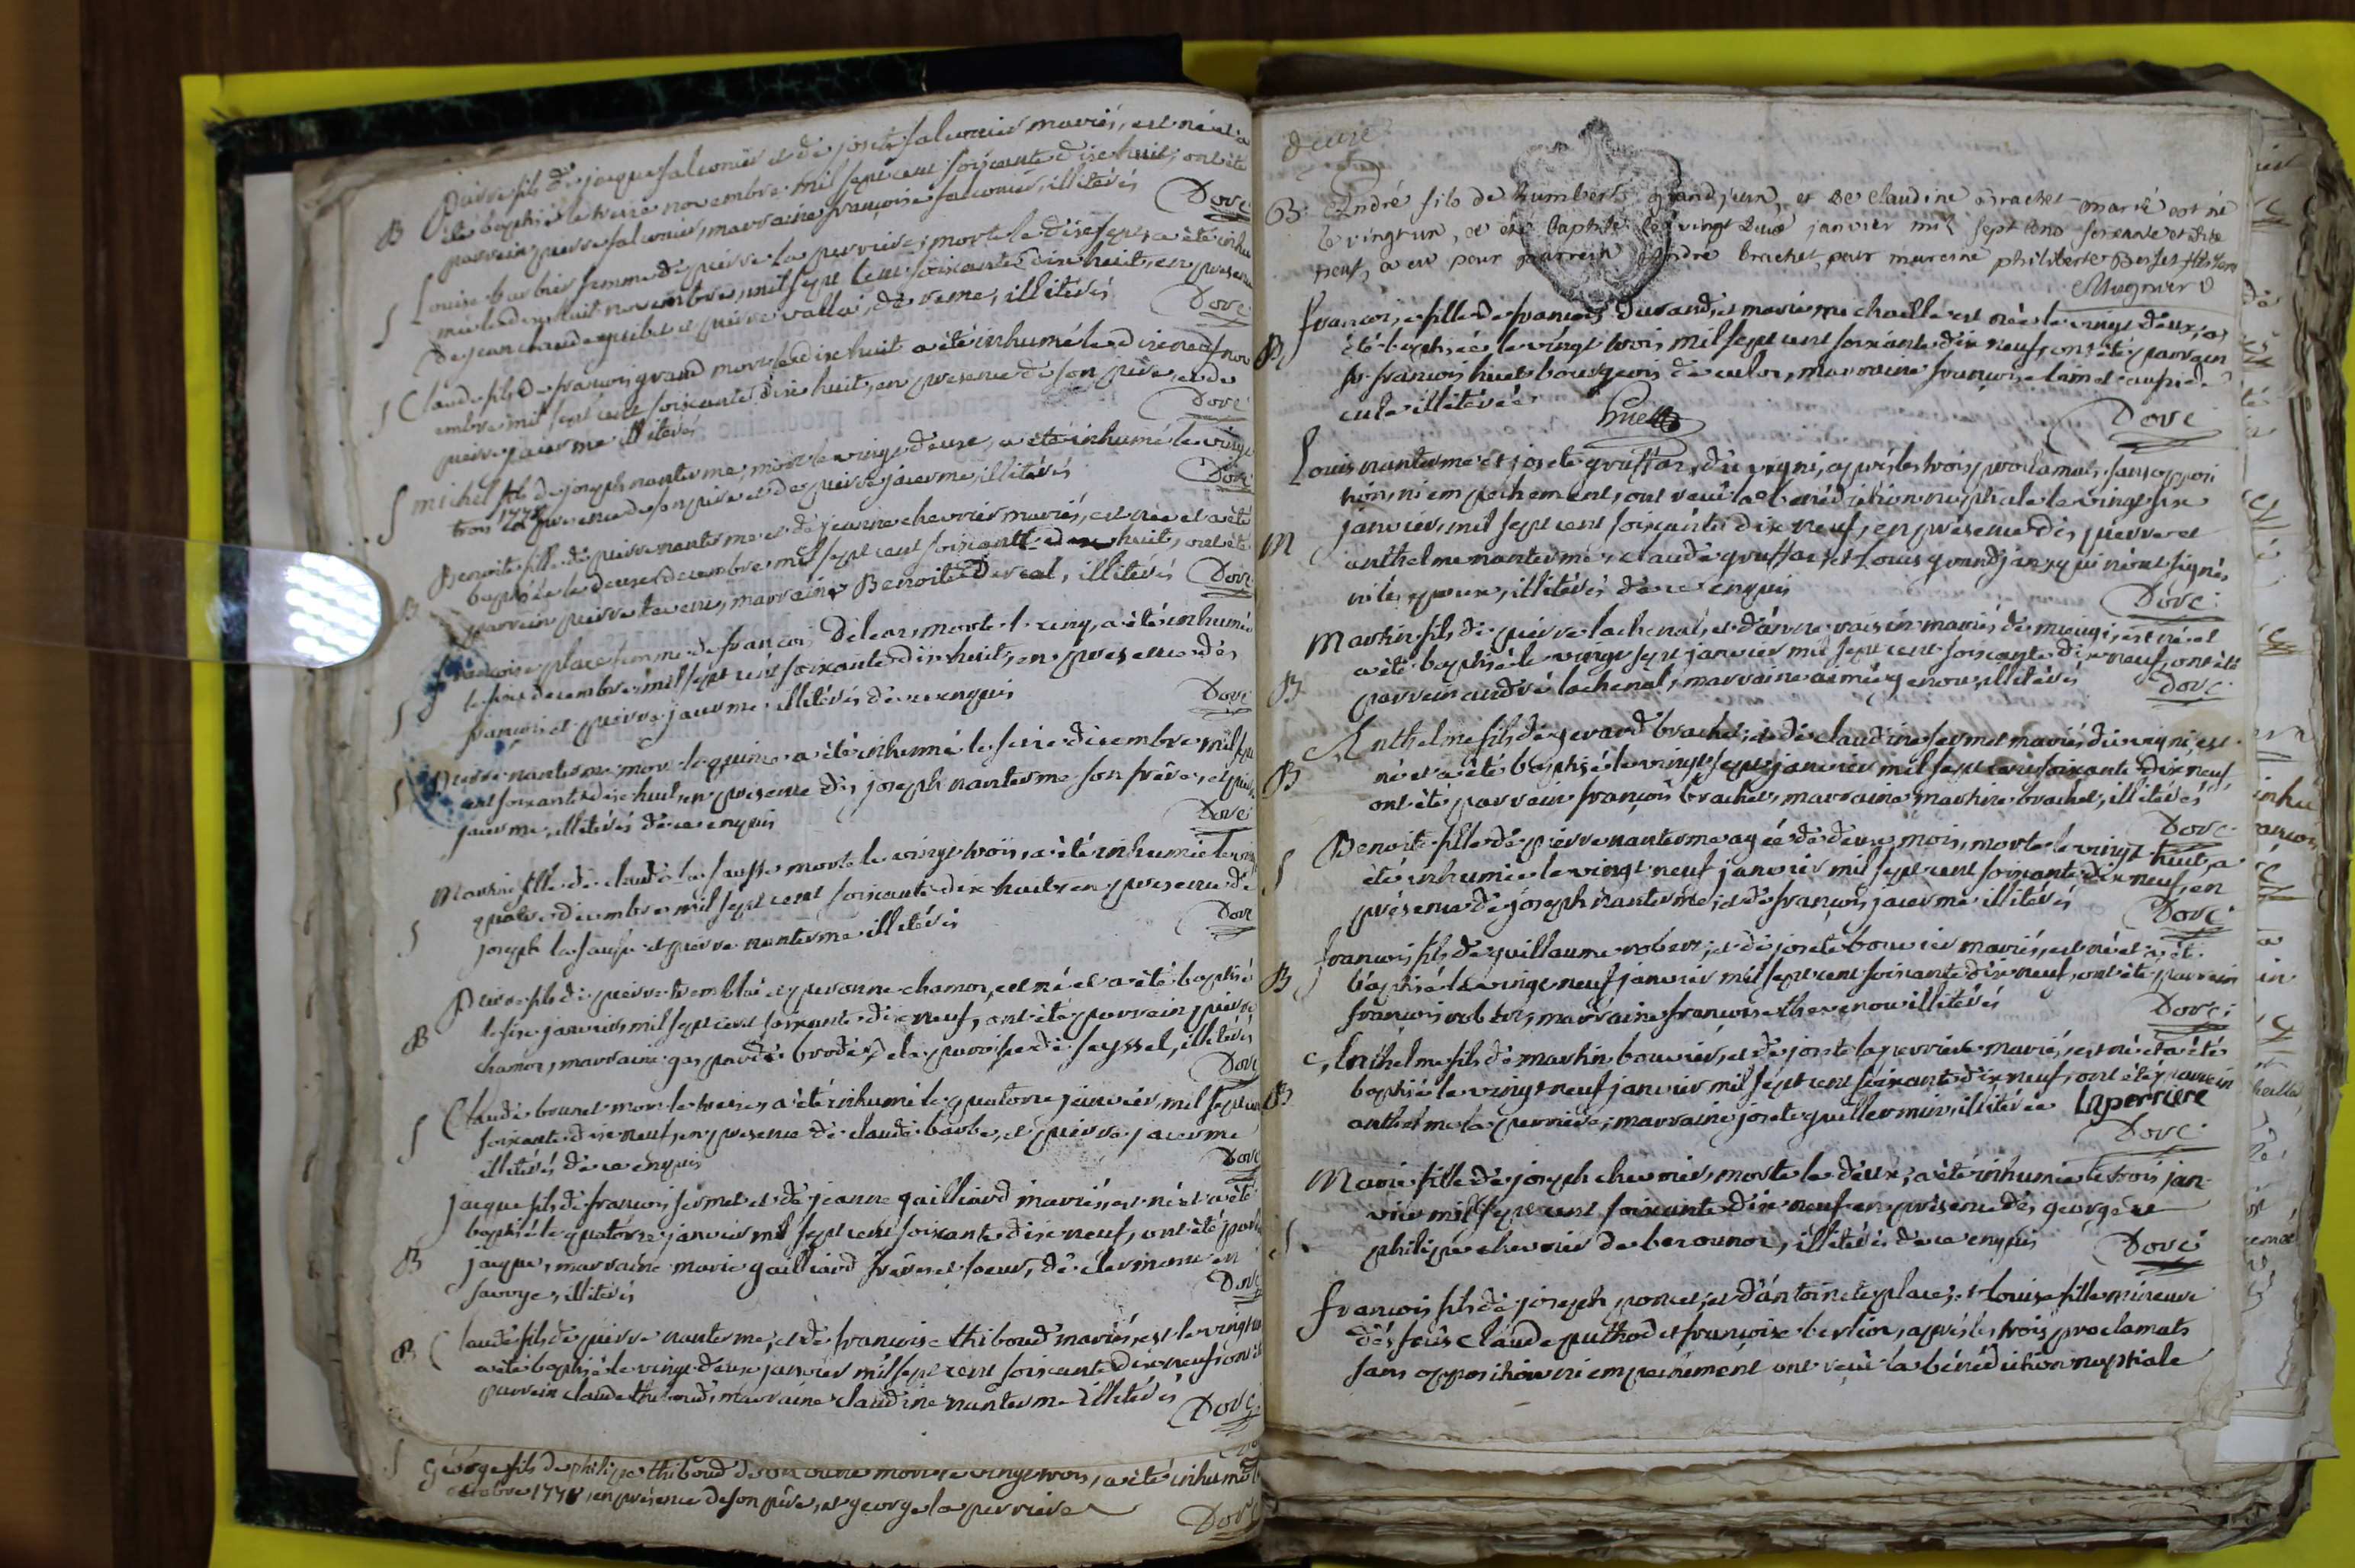 B Pierre fils de jacque falconier et de josete falconier mariés, est né et a
été baptisé le treize novembre mil sept cent soixante dixe huit, ont été
parrain pierre falconier, marraine françoise falconier, illiterés Dove
S Louise barbier femme de pierre la perriere, morte le dixe sept, a été inhu
mée le dixe huit novembre, mil sept cent soixante dixe huit, en presen
de jean claude et pierre vallai, de illiterés Dove
S Claude fils de francois grand mort le dixe huit a été inhumé le dixe neuf nov
embre mil sept cent soixante dixe huit, en presence de son père, et de
pierre jacerme illiterés Dove
S michel fils de joseph nanterme, mort le vingt deuxe, a été inhumé le vingt
trois 1778 en presence de son pere et de pierre jacerme, illiterés Dove
B Benoite fille de pierre nanterme et de jeanne chevrier mariés, est née et a été
baptisée le deuxe decembre mil sept cent soixante dixe huit, ont été
parrain pierre marraine Benoite illiterés Dove
S francoise place femme de francois morte le cinq, a été inhumée
le six decembre mil sept cent soixante dix huit, en presence des
francois et pierre jacerme illiterés de ce enquis Dove
S Pierre nanterme mort le quinze a été inhumé le seize decembre mil sep
cent soixante dixe huit, en presence des joseph nanterme son frère, et pier
jacerme, illiterés de ce enquis Dove
S Martine fille de claude la sausse morte le vingt trois, a été inhumée le vingt
quatre decembre mil sept cent soixante dix huit, en presence de
joseph la sausse et pierre nanterme illiterés Dove
B Pierre fils de pierre tremblai et peronne chamot, est né et a été baptisé
le sixe janvier mil sept cent soixante dixe neuf, ont été parrain pierre
chamot, marraine gasparde de la paroisse de seyssel, illiterés Dove
S Claude bouvet mort le treize, a été inhumé le quatorze janvier, mil sept cent
soixante dixe neuf, en presence de claude barbe, et pierre jacerme
illiterés de ce enquis Dove
B jacque fils de francois fermet et de jeanne gailliard mariés, est né et a été
baptisé le quatorze janvier mil sept cent soixante dixe neuf, ont été parr
jacque, marraine marie gailliard frères et soeur, de clermont en
savoye, illiterés Dove
B Claude fils de pierre nanterme, et de francoise thiboud mariés, est le vingt un
a été baptisé le vingt deuxe janvier mil sept cent soixante dixe neuf ont été
parrain claude thiboud, marraine claudine nanterme illiterés Dove
S george fils de philipe thiboud mort le vingt trois, a été inhumé le
octobre 1778, en présence de son père, et george la perriere
Dove
deuxe
B. André fils de humbert grand jean, et de claudine brachet marié est né
le vingt un, et été baptisé le vingt deux janvier mil sept cens soixante et dixe
neuf, a eu pour parrein andré brachet, pour mareine philiberte
Mugnier
B françoise fille de françois durand, et marie michaelle est née le vingt deux, a
été baptisée le vingt trois, mil sept cent soixante dix neuf, ont été parrain
sr françois huet bourgeois de culoz, marraine françoise aussi de
culo illiterée Huet Dove
Louis nanterme et josete gruffaz, du vugni, apprés les trois proclamats, sans oppoi
tion, ni empechement, ont reçu la bénédiction nuptiale le vingt six
M janvier, mil sept cent soixante dix neuf, en présence des pierre et
anthelme nanterme, claude gruffaz et Louis grandjan, qui n'ont signés,
ni les epoux, illiterés de ce enquis Dove
B Martin fils de pierre lachenal, et d'anne mariés de est né et
a été baptisé le vingt sept janvier mil sept cent soixante dix neuf, ont été
parrain andré lachenal, marraine aimée genou, illiterés Dove
B Anthelme fils de gerard brachet, et de claudine fermet mariés du vugni, est
né et a été baptisé le vingt sept janvier mil sept cent soixante dix neuf,
ont été parrain françois brachet, marraine martine brachet, illiterés
Dove
S Benoite fille de pierre nanterme agée de deux mois, morte le vingt huit, a
été inhumée le vingt neuf janvier mil sept cent soixante dix neuf, en
présence de joseph nanterme, et de françois jacerme illiterés Dove
B francois fils de guillaume robert, et de josete bouvier mariés, est né et a été
baptisé le vingt neuf janvier mil sept cent soixante dix neuf, ont été parrain
francois robert, marraine francoise thevenou illiterés Dove
B Anthelme fils de martin bouvier, et de josete la perriere mariés, est né et a été
baptisé le vingt neuf janvier mil sept cent soixante dix neuf, ont été parrain
anthelme la perriere, marraine josete guillermin, illiterée laperriere
Dove
S Marie fille de joseph chevrier, morte le deux, a été inhumée le trois jan
vier mil sept cent soixante dix neuf en présence des george et
philipe chevrier de illiterés de ce enquis Dove
francois fils de joseph poncet, et d'antoinete place, et Louise fille mineure
des feus claude puthod et françoise berlioz, aprés les trois proclamats
sans opposition ni empechement ont reçu la bénédiction nuptiale